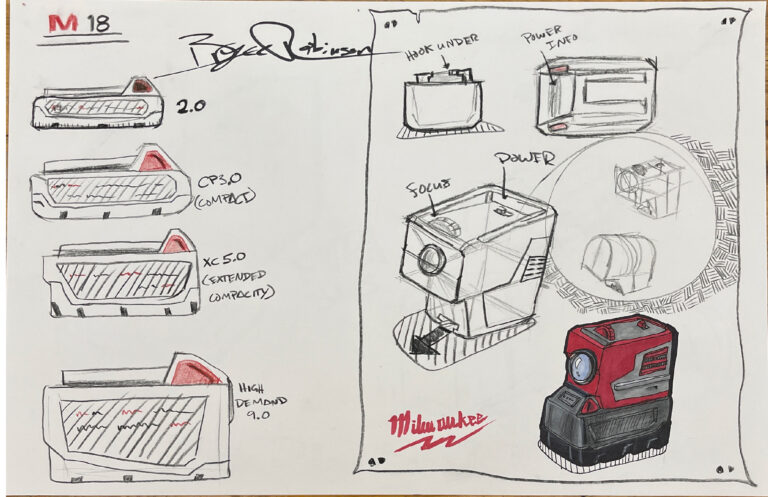 M 18
Bryce Robinson
2.0
CP3.0
(COMPACT)
XC 5.0
(EXTENDED
COMPACITY)
HIGH
DEMAND
9.0
HOOK UNDER
POWER
INFO
FOCUS
POWER
Milwaukee